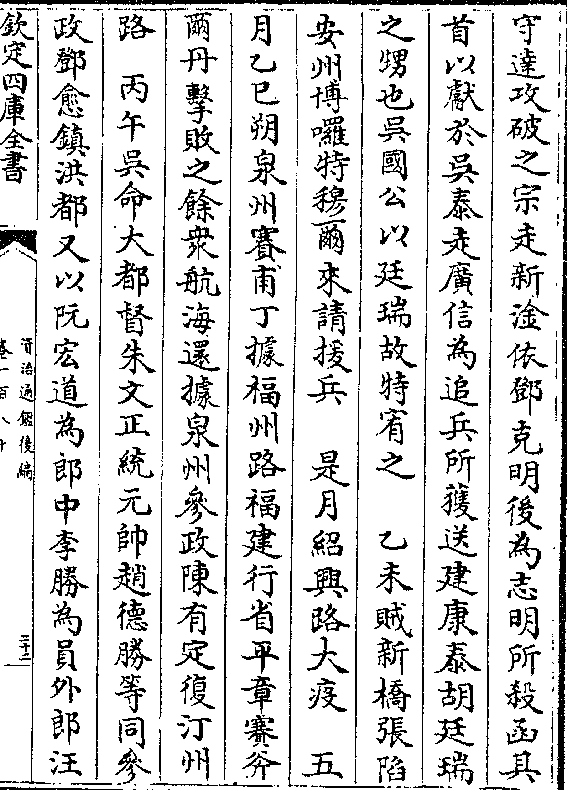 守達攻破之宗走新淦依鄧克明後為志明所殺函其
首以獻於吳泰走廣信為追兵所獲送建康泰胡廷瑞
之甥也吳國公以廷瑞故特宥之 乙未賊新橋張陷
安州博囉特穆爾來請援兵 是月紹興路大疫 五
月乙巳朔泉州賽甫丁據福州路福建行省平章賽斧
爾丹擊敗之餘衆航海還據泉州參政陳有定復汀州
路 丙午吳命大都督朱文正統元帥趙德勝等同參
政鄧愈鎮洪都又以阮宏道為郎中李勝為員外郎汪
欽定四庫全書
資治通鑑後編
卷一百八十
三十二